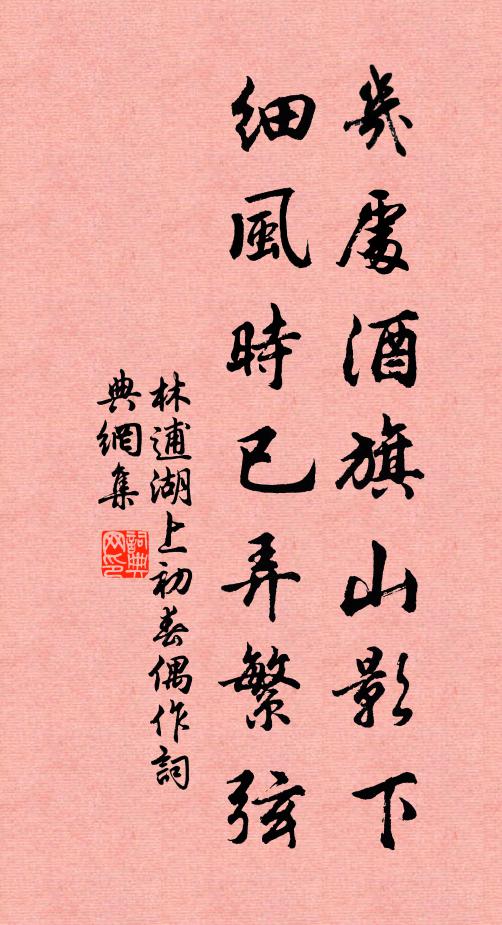 幾處酒旗山影下
細風時已弄繁弦
林逋湖上初春偶作詞
典網集
詞典
网印